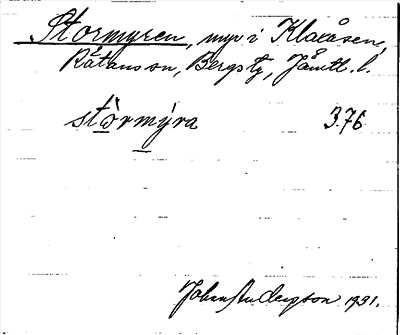 Stormyren, myr i Klaxåsen,
Rätansson, Bergs tg, Jämtl. l.
stòrmýra 3.76
Johan Anderson 1931.